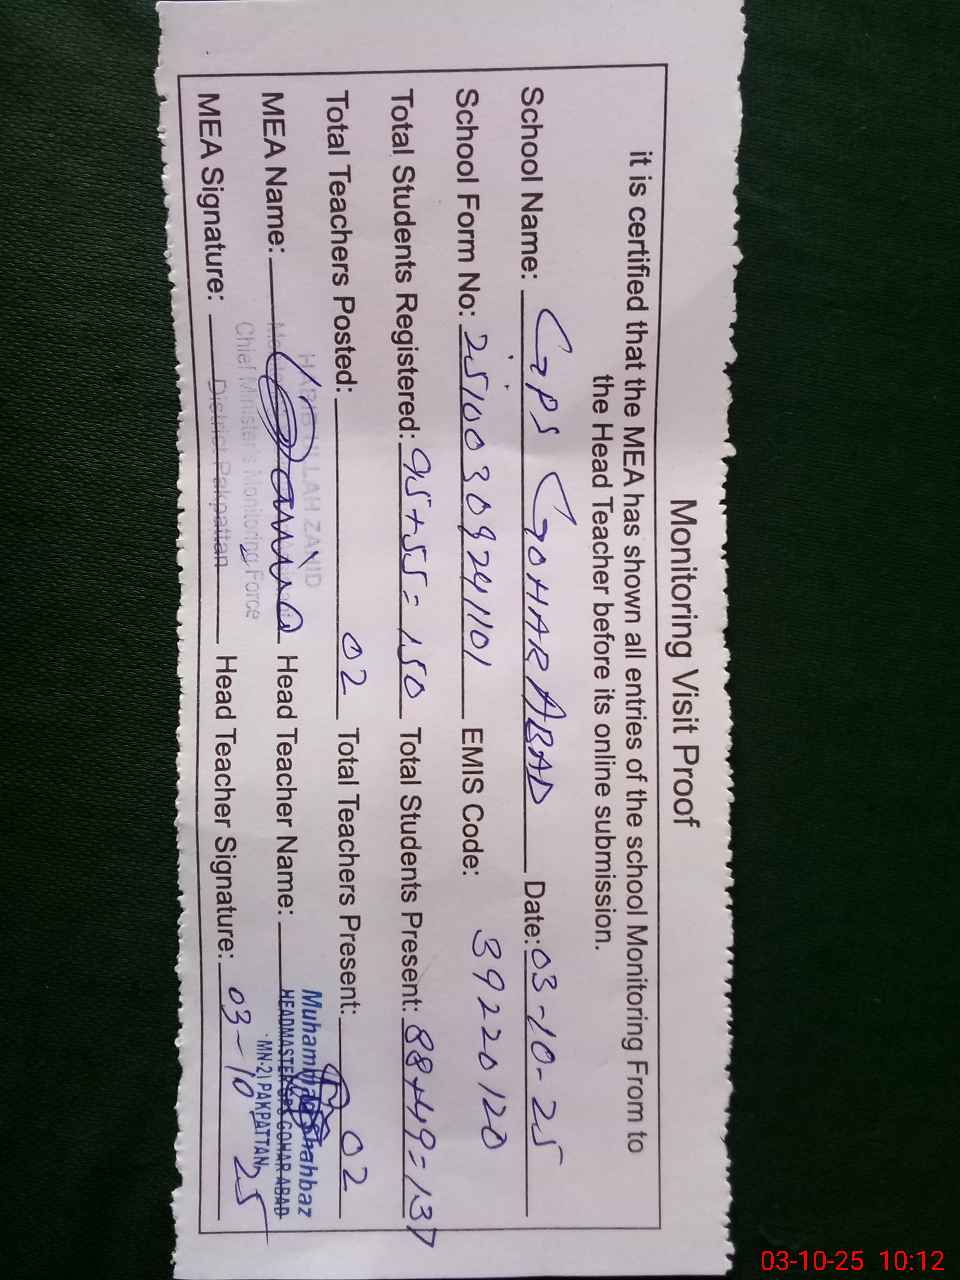 Monitoring Visit Proof
it is certified that the MEA has shown all entries of the school Monitoring From to
the Head Teacher before its online submission.
School Name: GPS GOHAR ABAD Date: 03-10-25
School Form No: 25100309241101 EMIS Code: 39220120
Total Students Registered: 95+55= 150 Total Students Present: 88+49=137
Total Teachers Posted: 02 Total Teachers Present: 02
MEA Name: Head Teacher Name:
MEA Signature: Head Teacher Signature: 03-10 25
HABIB ULLAH ZAHID
Chief Minister's Monitoring Force
District Pakpattan
Muhammad Shahbaz
HEADMASTER GPS GOHAR ABAD
MN-21 PAKPATTAN
03-10-25 10:12